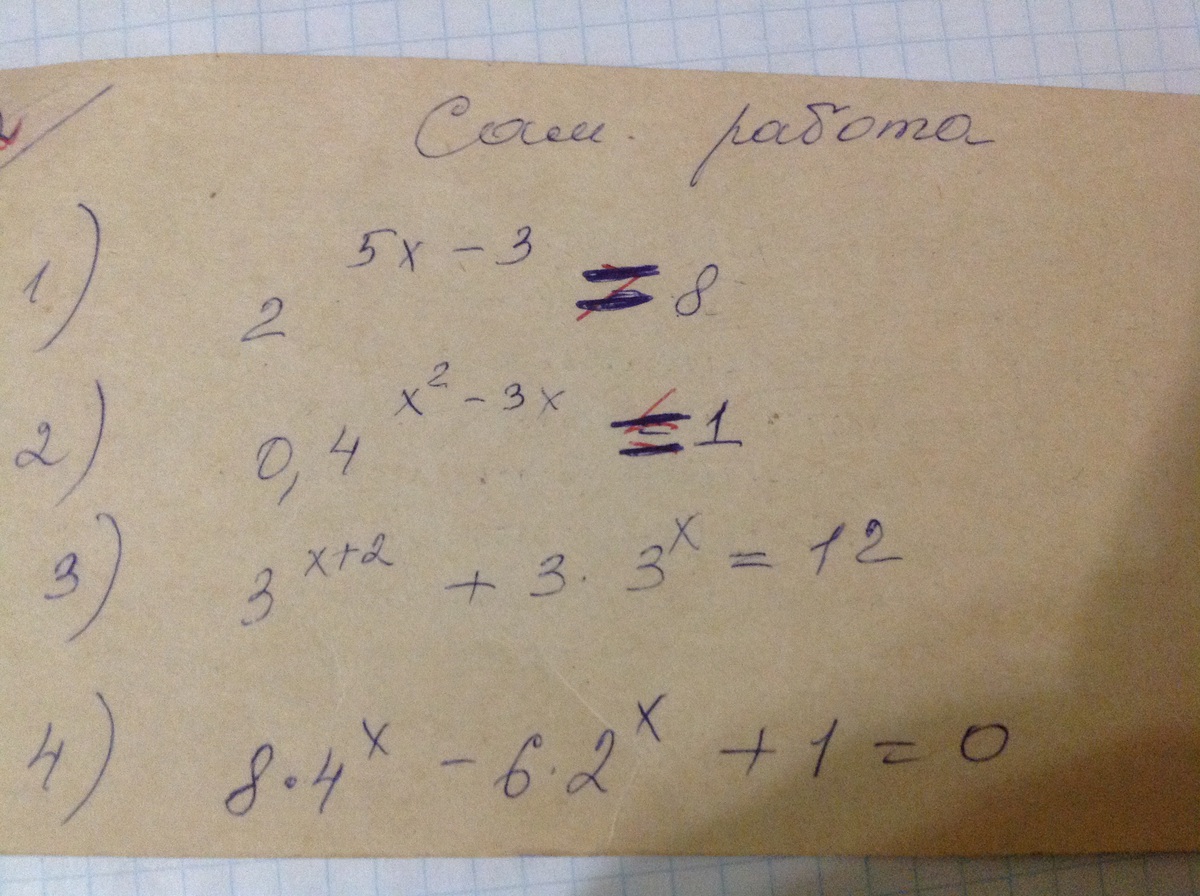 Сам. работа
1) 2^{5x-3} = 8
2) 0,4^{x^2-3x} = 1
3) 3^{x+2} + 3 · 3^x = 12
4) 8 · 4^x - 6 · 2^x + 1 = 0